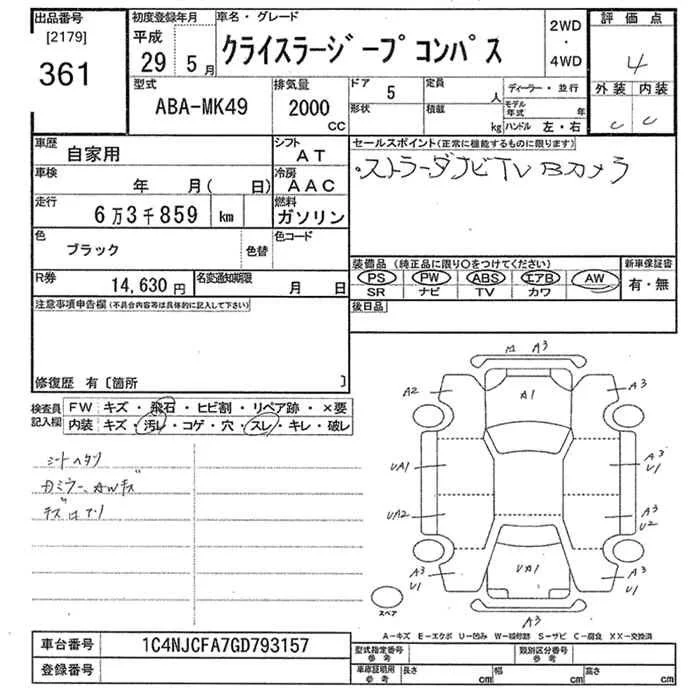 出品番号
[2179]
361
初度登録年月
平成
29 5月
車名・グレード
クライスラージープコンパス
2WD
・
4WD
評価点
4
外装 内装
C C
型式
ABA-MK49
排気量
2000
CC
ドア 5
形状
定員 人
積載 kg
ディーラー・並行
モデル年式 年
ハンドル 左・右
車歴 自家用
シフト AT
車検 年 月( 日)
冷房 AAC
走行 6万3千859 km
燃料 ガソリン
色 ブラック 色替
色コード
R券 14,630円
名変通知期限 月 日
セールスポイント(正常に機能するものに限ります)
・ストラーダナビTV Bカメラ
装備品(純正品に限り○をつけてください)
PS PW ABS エアB AW
SR ナビ TV カワ
新車保証書
有・無
後日品
注意事項申告欄(不具合内容等は具体的に記入して下さい)
修復歴 有〔箇所 〕
検査員記入欄
FW キズ・飛石・ヒビ割・リペア跡・×要
内装 キズ・汚レ・コゲ・穴・スレ・キレ・破レ
シートヘタリ
カミラー、AWキズ
A3
A2 A1 A3
UA1 A3 U1
UA2 A3 U2
A3 U1 UA1 A3 U1
スペア
A3
A-キズ E-エクボ U-凹み W-補修跡 S-サビ C-腐食 XX-交換済
車台番号 1C4NJCFA7GD793157
登録番号
型式指定番号 参考
類別区分番号 参考
車庫証明用 参考
長さ cm 幅 cm 高さ cm